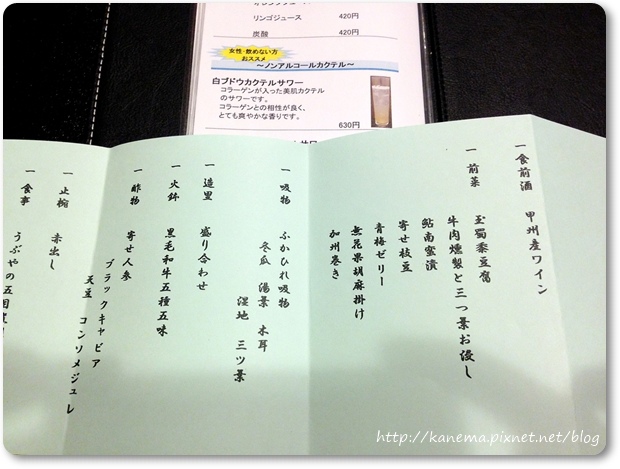 リンゴジュース 420円
炭酸 420円
女性・飲めない方
おススメ
～ノンアルコールカクテル～
白ブドウカクテルサワー
コラーゲンが入った美肌カクテル
のサワーです。
コラーゲンとの相性が良く、
とても爽やかな香りです。
630円
一 食前酒 甲州産ワイン
一 前菜 玉蜀黍豆腐
牛肉燻製と三つ葉お浸し
鮎南蛮漬
寄せ枝豆
青梅ゼリー
無花果胡麻掛け
加州巻き
一 吸物 ふかひれ吸物
冬瓜 湯葉 木耳
湿地 三ツ葉
一 造里 盛り合わせ
一 火鉢 黒毛和牛五種五味
一 酢物 寄せ人参
ブラックキャビア
天豆 コンソメジュレ
一 止椀 赤出し
一 食事 うぶやの五目
http://kanema.pixnet.net/blog